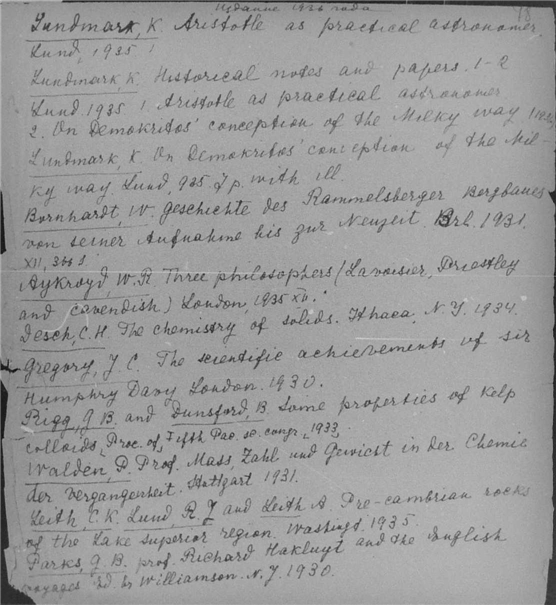 Издание 1936 года 18
Lundmark, K. Aristotle as practical astronomer,
Lund, 1935 1
Lundmark, K. Historical notes and papers. 1-2
Lund 1935 1. Aristotle as practical astronomer
2. On Demokritos' conception of the Milky way
Lundmark, K. On Demokritos' conception of the Mil-
ky way Lund, 935 7 p. with ill.
Bornhardt, W. geschichte des Rammelsberger Bergbaues
von seiner Aufnahme bis zur Neuzeit. Brl. 1931.
XII, 366 S
Aykroyd, W.R. Three philosophers (Lavoisier, Priestley
and Cavendish) London, 1935 XII.
Desch, C.H. The chemistry of solids. Ithaca, N.Y. 1934.
Gregory, J.C. The scientific achievements of sir
Humphry Davy London. 1930.
Rigg, G B. and Dunsford, B. Some properties of Kelp
colloids, Proc. of Fifth Pac. sc. congr., 1933,
Walden, P Prof. Mass, Zahl und Gewicht in der Chemie
der Vergangenheit. Stuttgart 1931.
Leith, C.K. Lund, R J and Leith A. Pre-cambrian rocks
of the Lake Superior region. Washingt. 1935.
Parks, G.B. prof. Richard Hakluyt and the English
voyages Ed. by Williamson. N.Y. 1930.